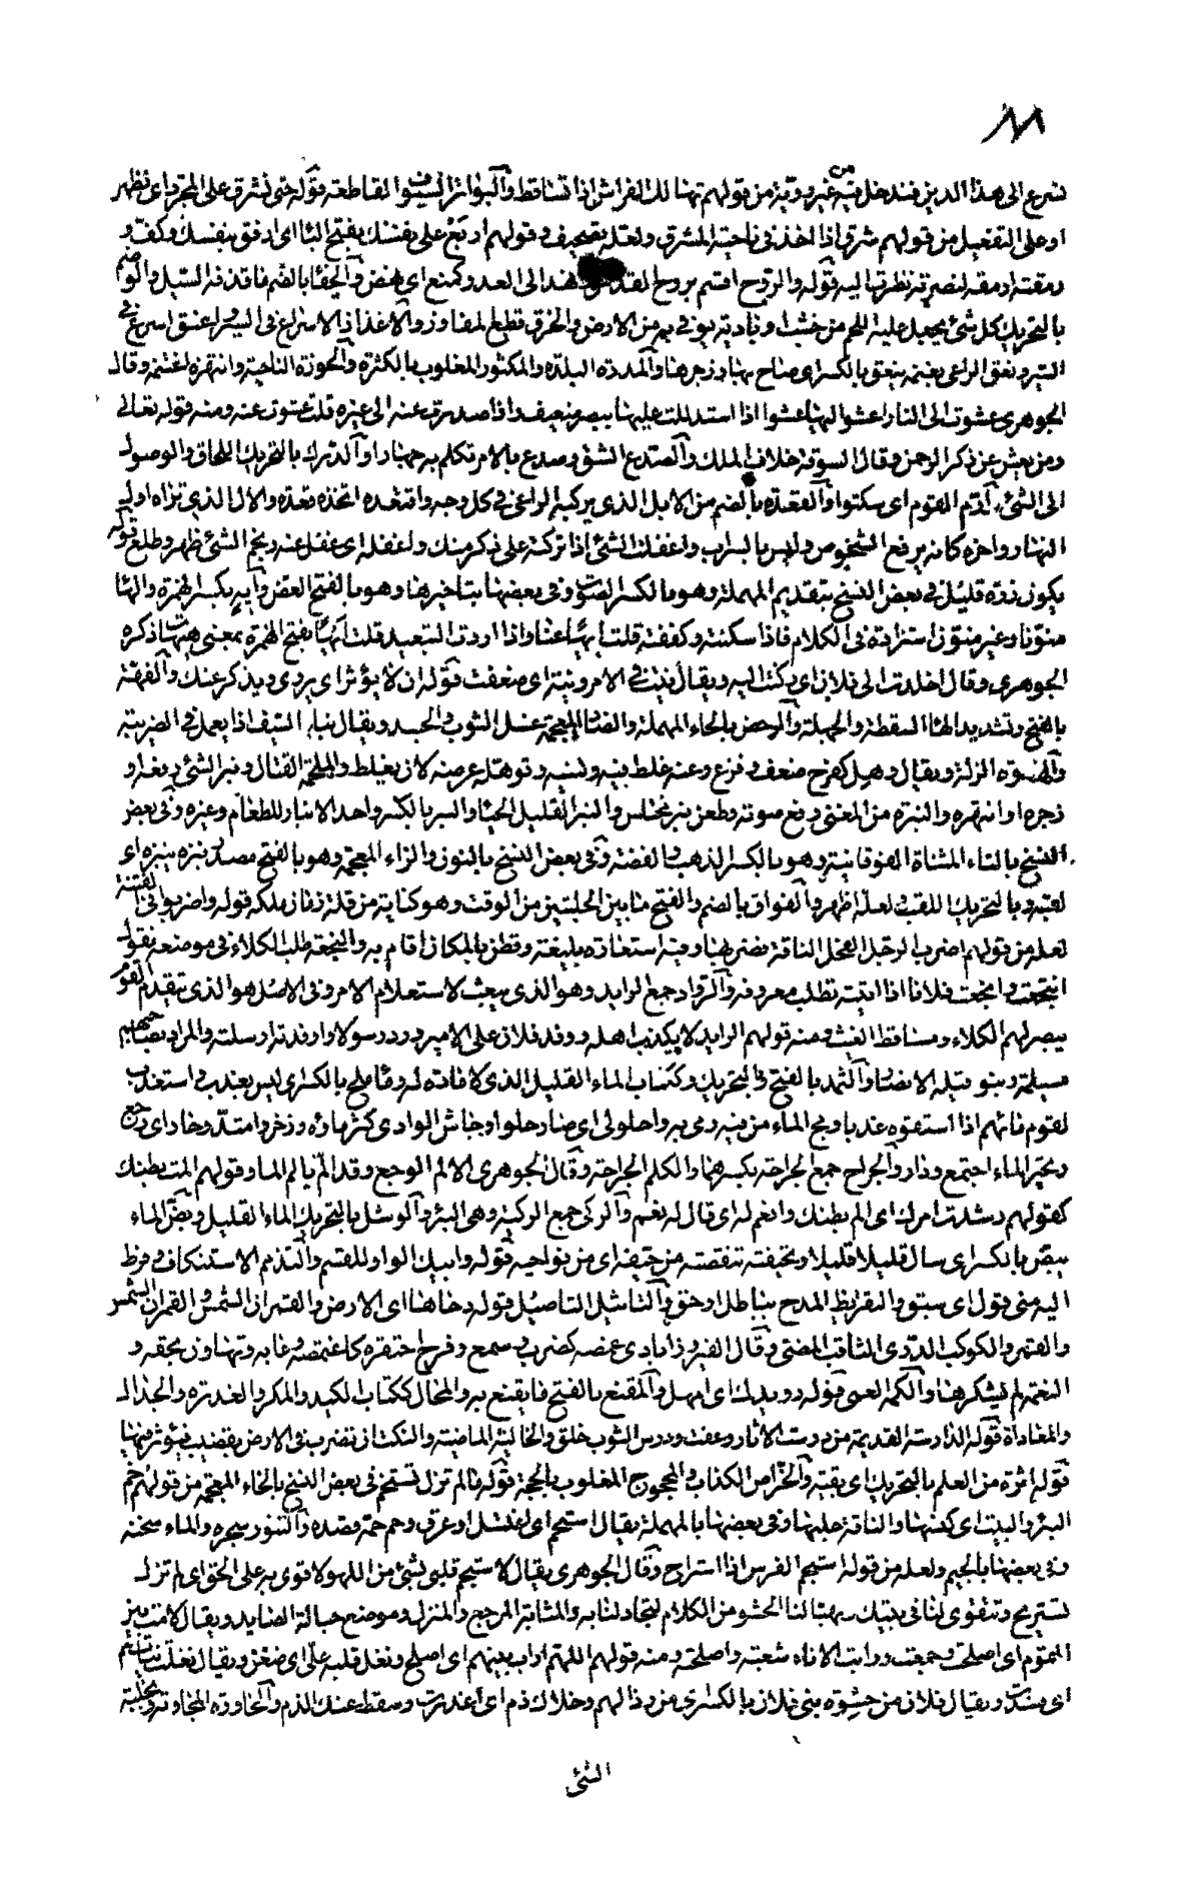 ٨٨
تسرع الى هذا الدين فتدخل فيه من غير روية من قولهم تهالك الفراش اذا تساقط والبواتر السيوف القاطعة قوله حتى تشرق على المجرد اى تظهر
او على التفعيل من قولهم شرق اذا اخذ فى ناحية المشرق ولعله تصحيف وقولهم اربع على نفسك بفتح الباء اى ارفق بنفسك وكف و
رمقته ارمقه نصرته نظرت اليه قوله والروح اقسم بروح القدس نهد الى العدو كمنع اى نهض والجفاء بالضم ما قذفه السيل والوضم
بالتحريك كل شئ يجعل عليه اللحم من خشب او بارية يوقى به من الارض والخرق قطع المفاوز والاغذاذ الاسراع فى السير واعنق اسرع فى
السير ونعق الراعى بغنمه ينعق بالكسر اى صاح بها وزجرها والمدرة البلدة والمكثور المغلوب بالكثرة والحوزة الناحية وانتهزه اغتنمه وقال
الجوهرى عشوت الى النار اعشو اليها عشوا اذا استدللت عليها ببصر ضعيف واذا صدرت عنه الى غيره قلت عشوت عنه ومنه قوله تعالى
ومن يعش عن ذكر الرحمن وقال السوقة خلاف الملك والصدع الشق وصدع بالامر تكلم به جهارا والدرك بالتحريك اللحاق والوصول
الى الشئ ارم القوم اى سكتوا والقعدة بالضم من الابل الذى يركبه الراعى فى كل وجه واقتعده اتخذه قعدة والال الذى تراه اول
النهار واخره كانه يرفع الشخوص وليس بالسراب واغفلت الشئ اذا تركته على ذكر منك واغفله اى غفل عنه ونجم الشئ ظهر وطلع قوله
يكون زوه قليل فى بعض النسخ بتقديم المهملة وهو بالكسر الصوت وفى بعضها بتاخيرها وهو بالفتح العض وايه بكسر الهمزة والهاء
منونا وغير منون استزادة فى الكلام فاذا سكنته وكففته قلت ايها عنا واذا اردت التبعيد قلت ايها بفتح الهمزة بمعنى هيهات ذكره
الجوهرى وقال اخلدت الى فلان اى ركنت اليه ويقال ونيت فى الامر ونية اى ضعفت قوله ان لا يؤثر اى يروى ويذكر عنك والفهة
بالفتح وتشديد الهاء السقطة والجهلة والرحض بالحاء المهملة والضاد المعجمة غسل الثوب والجسد ويقال نبا السيف اذا لم يعمل فى الضريبة
والهفوة الزلة ويقال وهل كفرح ضعف وفزع وعنه غلط فيه ونسيه وتوهله عرضه لان يغلط والملحمة القتال ونبر الشئ رفعه و
زجره او انتهره والنبرة من المغنى رفع صوته وطعن نبر مختلس والنبر القليل الحياء والنبر بالكسر واحد الانبار للطعام وغيره وفى بعض
النسخ بالتاء المثناة الفوقانية وهو بالكسر الذهب والفضة وفى بعض النسخ بالنون والزاء المعجمة وهو بالفتح مصدر نبزه ينبزه اى
لقبه وبالتحريك اللقب ولعله اظهر والفواق بالضم والفتح ما بين الحلبتين من الوقت وهو كناية من قلة زمان ملكه قوله واضربوا فى الفتنة
لعله من قولهم اضرب الرجل الفحل الناقة فضربها وفيه استعارة بليغة وقطن بالمكان اقام به والنجعة طلب الكلاء فى موضعه تقول
انتجعت وانتجعت فلانا اذا اتيته تطلب معروفه والرواد جمع الرايد وهو الذى يبعث لاستعلام الامر وفى الاصل هو الذى يتقدم القوم
يبصر لهم الكلاء ومساقط الغيث ومنه قولهم الرايد لا يكذب اهله ووفد فلان على الامير ورد رسولا واوفدته ارسلته والمراد بصاحبهم
مسيلمة وبنو قيلة الانصار والثمد بالفتح وبالتحريك وككتاب الماء القليل الذى لا مادة له وماء ملح بالكسر اى ليس بعذب واستعذب
لقوم ماءهم اذا استقوه عذبا ومج الماء من فيه رمى به واحلولى اى صار حلوا وجاش الوادى كثر ماؤه وزخر وامتد وحار اى رجع
وتحير الماء اجتمع ودار والجراح جمع الجراحة بكسرهما والكلم الجراحة وقال الجوهرى الالم الوجع وقد الم يالم الما وقولهم المت بطنك
كقولهم رشدت امرك اى الم بطنك وانعم له اى قال له نعم والركى جمع الركية وهى البئر والوشل بالتحريك الماء القليل وبض الماء
يبض بالكسر اى سال قليلا قليلا وتحيفته تنقصته من حيفه اى من نواحيه قوله وابيك الواو للقسم والتذمم الاستنكاف وفرط
اليه منى قول اى سبق والتقريظ المدح بباطل او حق والتاشل التاصيل قوله دحاها اى الارض والقمران الشمس والقمر ان الشمس
والقمر والكوكب الدرى الثاقب المضئ وقال الفيروزابادى غمصه كضرب وسمع وفرح احتقره كاغتمصه وعابه وتهاون بحقه و
النعمة لم يشكرها والكمه العمى قوله رويدك اى امهل والمقنع بالفتح ما يقنع به والمحال ككتاب الكيد والمكر والغدرة والجدال
والمعاداة قوله الدارسة القديمة من درست الاثار وعفت ودرس الثوب خلق والخالية الماضية والنكت ان تضرب فى الارض بقضيب فيؤثر فيها
قوله اثرة من العلم بالتحريك اى بقية والخراص الكذاب والمحجوج المغلوب بالحجة قوله فالم تزل تستخم فى بعض النسخ بالخاء المعجمة من قولهم خم
البئر والبيت اى كنسها والناقة حلبها وفى بعضها بالمهملة يقال استحم اى اغتسل او عرق وحم حمه قصده والتنور سجره والماء سخنه
وفى بعضها بالجيم ولعله من قوله استجم الفرس اذا استراح وقال الجوهرى يقال لاستجم قلبى بشئ من اللهو لاقوى به على الحق اى لم تزل
تستريح وتتقوى لنا فى بيتك وتهيئ لنا الحشو من الكلام لتجادلنا به والمثابة المرجع والمنزل وموضع حبالة الصايد ويقال لامت بين
القوم اى اصلحت وجمعت ورابت الاناء شعبته واصلحته ومنه قولهم اللهم اراب بينهم اى اصلح ونغل قلبه على اى ضغن ويقال نغلت نياتهم
اى فسدت ويقال فلان من حشوة بنى فلان بالكسر اى من رذالهم وخلاك ذم اى اعذرت وسقط عنك الذم والمحاورة المجاوبة وتحلبه
الشئ